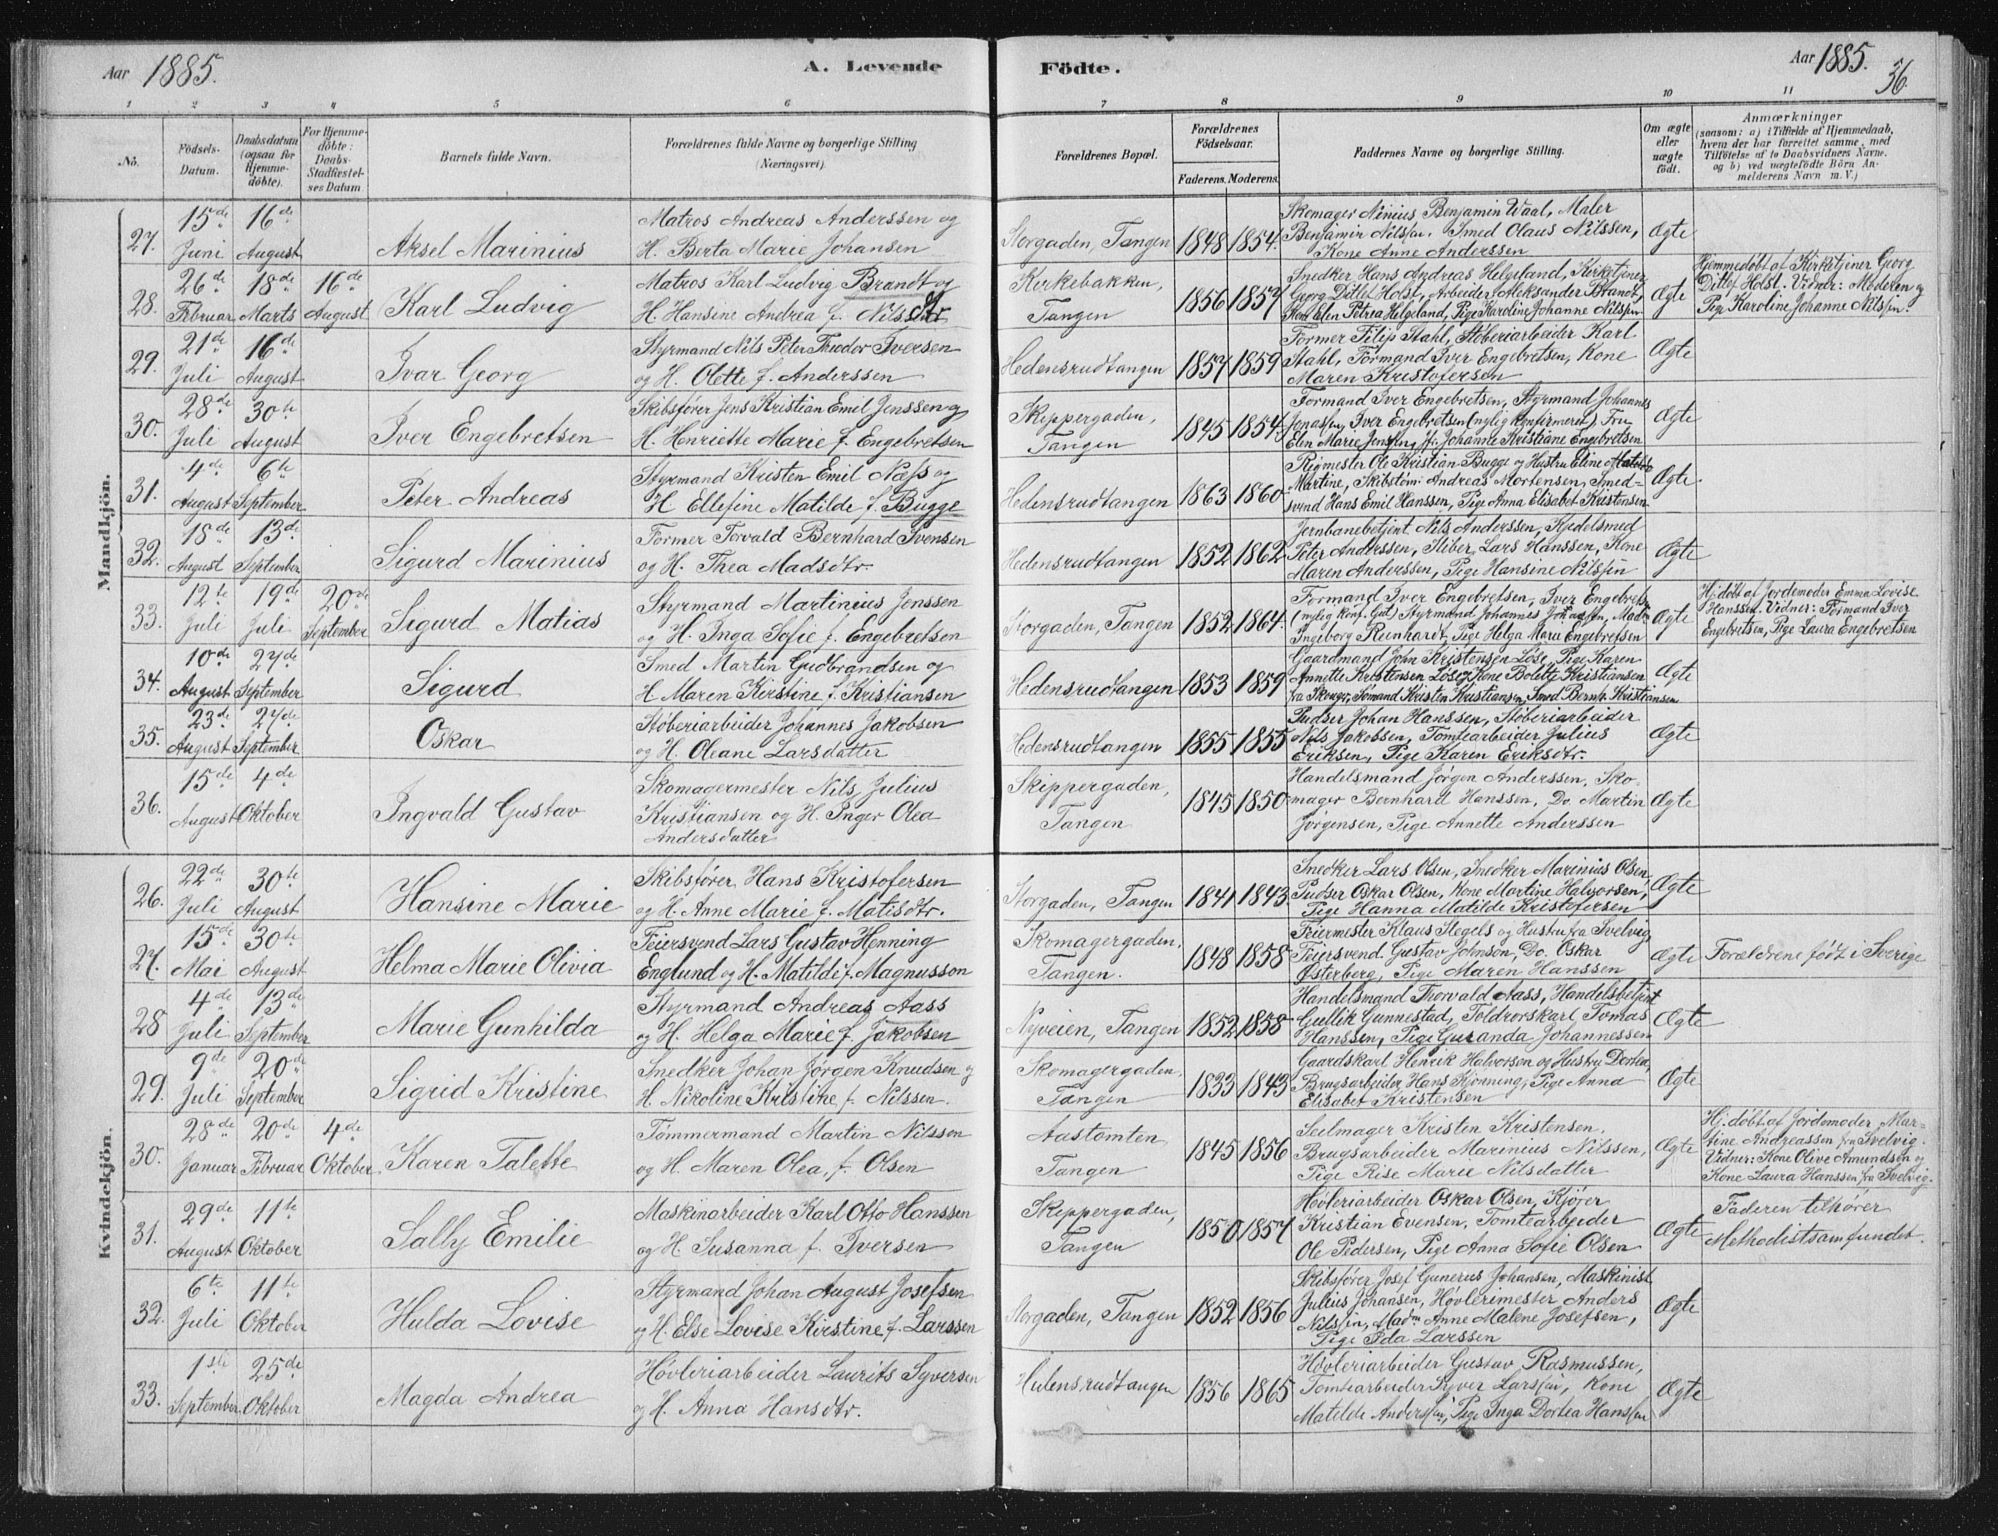 Aar 1885.
A. Levende
Födte.
Aar 1885.
36.
1 2 3 4 5 6 7 8 9 10 11
No.
Födsels-Datum.
Daabsdatum (ogsaa for Hjemmedöbte).
For Hjemmedöbte: Daabs-Stadfæstelses Datum
Barnets fulde Navn.
Forældrenes fulde Navne og borgerlige Stilling (Næringsvei)
Forældrenes Bopæl.
Forældrenes Födselsaar.
Faderens. Moderens.
Faddernes Navne og borgerlige Stilling.
Om ægte eller uægte födt.
Anmærkninger (saasom: a) i Tilfælde af Hjemmedaab, hvem der har forrettet samme, med Tilföielse af to Daabsvidners Navne. og b) ved uægtefödte Börn Anmelderens Navn m. V.)
Mandkjön.
27. 15de Juni 16de August Aksel Marinius
Matros Andreas Anderssen og
H. Berta Marie Johansen
Storgaden, Tangen 1848 1854.
Skomager Ninius Benjamin Waal, Maler
Benjamin Nilssen, Smed Olaus Nilssen,
Kone Anne Anderssen
Ægte
28. 26de Februar 18de Marts 16de August Karl Ludvig
Matros Karl Ludvig Brandt og
H. Hansine Andrea f. Nils dtr
Kirkebakken, Tangen 1856 1857
Snedker Hans Andreas Helgeland, Kirketjener
Georg Ditlef Holst, Arbeider Aleksander Brandt,
Elen Petrea Helgeland, Pige Karoline Johanne Nilssen
Ægte
Hjemmedøbt af Kirketjener Georg
Ditlef Holst. Vidner: Moderen og
Pige Karoline Johanne Nilssen.
29. 21de Juli 16de August Ivar Georg
Styrmand Nils Peter Theodor Iversen
og H. Olette f. Anderssen
Hedensrudtangen 1857 1859
Former Filip Stahl, Støberiarbeider Karl
Stahl, Formand Iver Engebretsen, Kone
Maren Kristofersen
Ægte
30. 28de Juli 30te August Iver Engebretsen
Skibsfører Jens Kristian Emil Jenssen og
H. Henriette Marie f. Engebretsen
Skippergaden, Tangen 1845 1854.
Formand Iver Engebretsen, Styrmand Johannes
Jonassen, Iver Engebretsen (nylig konfirmeret), Fru
Elen Marie Jenssen, Jf: Johanne Kristiane Engebretsen
Ægte
31. 4de August 6te September Peter Andreas
Styrmand Kristen Emil Næss og
H. Ellefine Matilde f. Bugge
Hedensrudtangen 1863 1860
Rigmester Ole Kristian Bugge og Hustru Eline
Martine, Skibstøm: Andreas Mortensen, Smed-
svend Hans Emil Hanssen, Pige Anna Elisabet Kristensen
Ægte
32. 18de August 13de September Sigurd Marinius
Former Torvald Bernhard Svensen
og H. Thea Madsdtr.
Hedensrudtangen 1852 1862
Jernbanebetjent Nils Anderssen, Kjedelsmed
Peter Anderssen, Sliber Lars Hanssen, Kone
Maren Anderssen, Pige Hansine Nilssen
Ægte
33. 12te Juli 19de Juli 20de September Sigurd Matias
Styrmand Martinius Jenssen
og H. Inga Sofie f. Engebretsen
Storgaden, Tangen 1852 1864.
Formand Iver Engebretsen, Iver Engebrets.
(nylig konf. Gut) Styrmand Johannes Jonassen, Mad:
Ingeborg Reinhardt, Pige Helga Marie Engebretsen
Ægte
Hj:døbt af Jordemoder Emma Lovise
Hanssen. Vidner: Formand Iver
Engebretsen, Pige Laura Engebretsen
34. 10de August 27de September Sigurd
Smed Martin Gudbrandsen og
H. Maren Kirstine f. Kristiansen
Hedensrudtangen 1853 1859
Gaardmand John Kristensen Løse, Pige Karen
Annette Kristensen Løse, Kone Bolette Kristiansen
fra Skouger, Sømand Kristen Kristiansen, Smed Bernh: Kristiansen
Ægte
35. 23de August 27de September Oskar
Støberiarbeider Johannes Jakobsen
og H. Oleane Larsdatter
Hedensrudtangen 1855 1855
Pudser Johan Hanssen, Støberiarbeider
Nils Jakobsen, Tomtearbeider Julius
Eriksen, Pige Karen Eriksdtr.
Ægte
36. 15de August 4de Oktober Ingvald Gustav
Skomagermester Nils Julius
Kristiansen og H. Inger Olea
Andersdatter
Skippergaden, Tangen 1845 1850
Handelsmand Jørgen Anderssen, Sko-
mager Bernhard Hanssen, Do. Martin
Jørgensen, Pige Annette Anderssen
Ægte
Kvindekjön.
26. 22de Juli 30te August Hansine Marie
Skibsfører Hans Kristofersen
og H. Anne Marie f. Matisdtr.
Storgaden, Tangen 1841 1843
Snedker Lars Olsen, Snedker Marinius Olsen,
Pudser Oskar Olsen, Kone Martine Halvorsen,
Pige Hanna Matilde Kristofersen
Ægte
27. 15de Mai 30te August Helma Marie Olivia
Feiersvend Lars Gustav Henning
Englund og H. Matilde f. Magnusson
Skomagergaden, Tangen. 1848 1858
Feiermester Klaus Stegels og Hustru fra Svelvig,
Feiersvend Gustav Johnson, Do. Oskar
Østerberg, Pige Maren Hanssen
Ægte
Forældrene født i Sverige
28 4de Juli 13de September Marie Gunhilda
Styrmand Andreas Aass
og H. Helga Marie f. Jakobsen
Nyveien, Tangen 1852 1858
Handelsmand Thorvald Aass, Handelsbetjent
Gullik Gunnestad, Toldrorskarl Tomas
Hanssen, Pige Guranda Johannessen
Ægte
29. 9de Juli 20de September Sigrid Kristine
Snedker Johan Jørgen Knudsen og
H. Nikoline Kristine f. Nilssen.
Skomagergaden, Tangen 1833 1843
Gaardskarl Henrik Halvorsen og Hustru Dortea,
Brugsarbeider Hans Kjønning, Pige Anna
Elisabet Kristensen
Ægte
30. 28de Januar 20de Februar 4de Oktober Karen Talette
Tømmermand Martin Nilssen
og H. Maren Olea f. Olsen
Aastomten Tangen 1845 1856
Seilmager Kristen Kristensen,
Brugsarbeider Marinius Nilssen,
Pige Rise Marie Nilsdatter
Ægte
Hj:døbt af Jordemoder Mar-
tine Andreassen fra Svelvig.
Vidner: Kone Olive Amundsen og
Kone Laura Hanssen fra Svelvig.
31. 29de August 11te Oktober Sally Emilie
Maskinarbeider Karl Otto Hanssen
og H. Susanna f. Iversen
Skippergaden, Tangen 1850 1857
Høvleriarbeider Oskar Olsen, Kjører
Kristian Evensen, Tomtearbeider
Ole Pedersen, Pige Anna Sofie Olsen
Ægte
Faderen tilhører
Methodistsamfundet.
32. 6te Juli 11te Oktober Hulda Lovise
Styrmand Johan August Josefsen
og H. Else Lovise Kirstine f. Larssen
Storgaden, Tangen 1852 1856
Skibsfører Josef Gunerus Johansen, Maskinist
Julius Johansen, Høvlerimester Anders
Nilssen, Madm Anne Malene Josefsen,
Pige Ida Larssen
Ægte
33. 1ste September 25de Oktober Magda Andrea
Høvleriarbeider Laurits Syversen
og H. Anna Hansdtr.
Hulensrudtangen 1856 1865
Høvleriarbeider Gustav Rasmussen,
Tomtearbeider Syver Larssen, Kone
Matilde Anderssen, Pige Inga Dortea Hanssen
Ægte